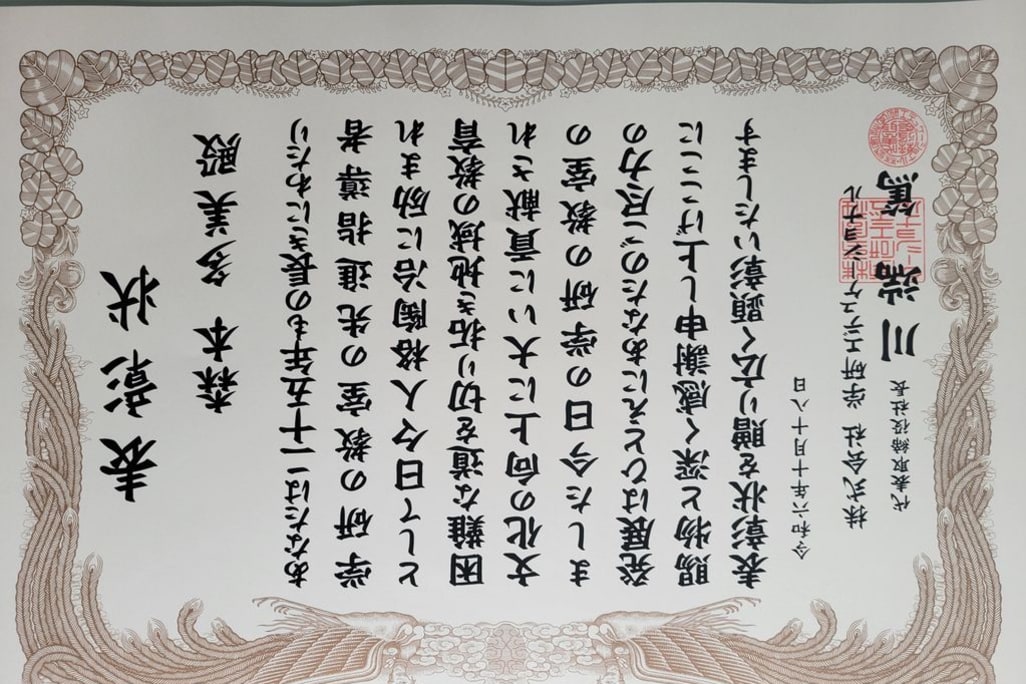 表彰状
森本多美殿
あなたは二十五年もの長きにわたり
学研の教室の先進指導者
として日々人格陶冶に励まれ
困難な道を切り拓き地域の教育
文化の向上に大いに貢献され
ました今日の学研の教室の
発展はひとえにあなたのご尽力の
賜物と深く感謝申し上げここに
表彰状を贈り広く顕彰いたします
令和六年十月十八日
株式会社 学研エデュケーショナル
代表取締役社長 川端篤